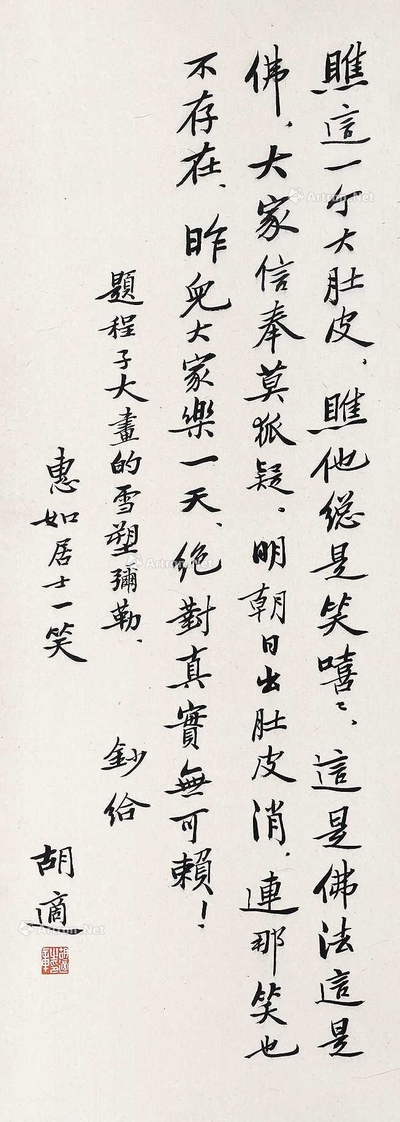 瞧這一个大肚皮、瞧他總是笑嘻〻、這是佛法這是
佛、大家信奉莫狐疑、明朝日出肚皮消、連那笑也
不存在、昨兒大家樂一天、絕對真實無可賴！
題程子大畫的雪塑彌勒、
鈔給
惠如居士一笑
胡適
Artron.Net
Artron.Net
Artron.Net
Artron.Net